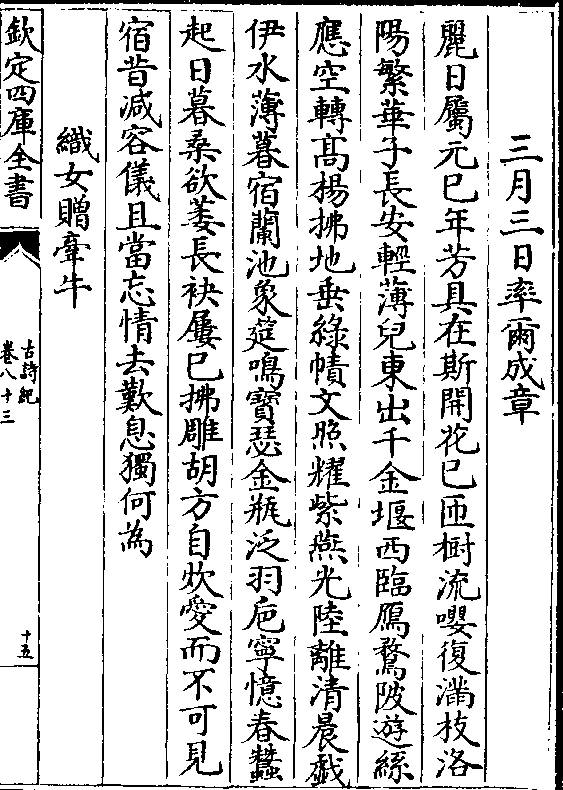 三月三日率爾成章
麗日屬元巳年芳具在斯開花已匝樹流嚶復滿枝洛
陽繁華子長安輕薄兒東出千金堰西臨鴈鶩陂遊絲
應空轉髙楊拂地垂綠幘文照耀紫燕光陸離清晨戲
伊水薄暮宿蘭池象筵鳴寶瑟金瓶泛羽巵寧憶春蠶
起日暮桑欲萎長袂屢已拂雕胡方自炊愛而不可見
宿昔減容儀且當忘情去歎息獨何為
織女贈牽牛
欽定四庫全書
古詩紀
卷八十三
十五